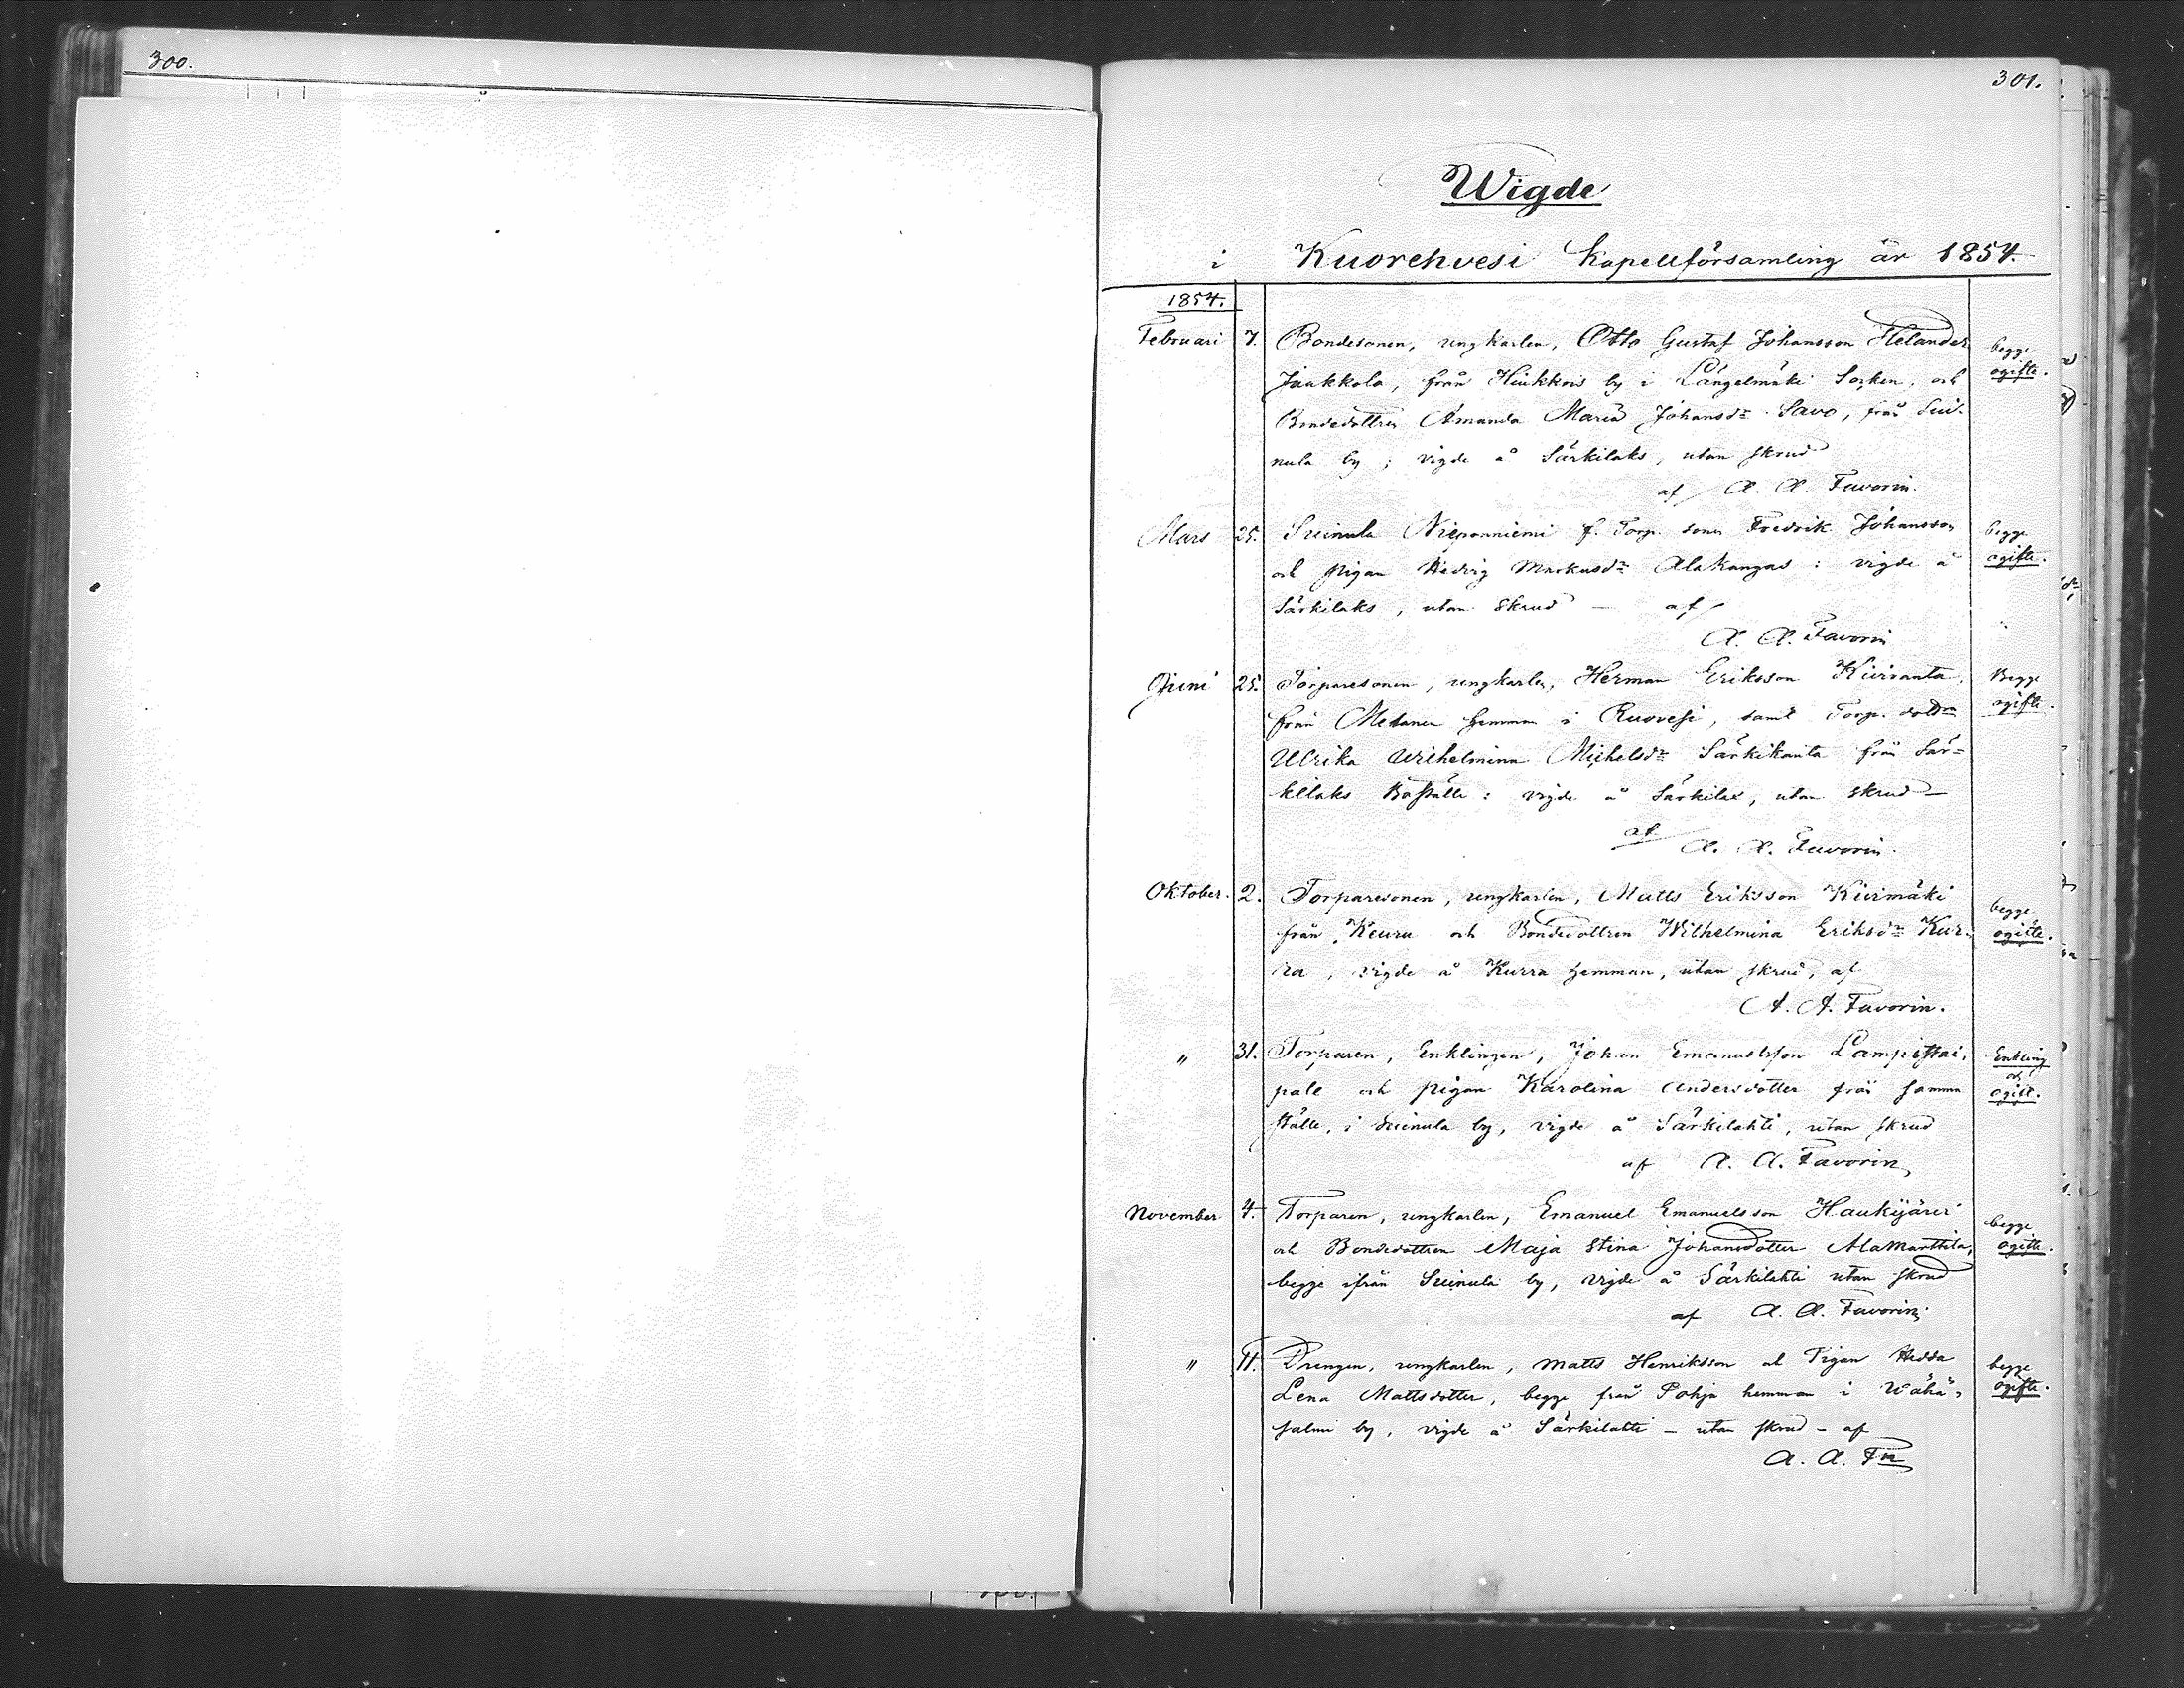 300.
301.
Wigde
i Kuorehvesi Kapellförsamling år 1854.
1854.
Februari 7. Bondesonen, ungkarlen, Otto Gustaf Johansson Helander begge
Jaakkola, från Hiukkois by i Längelmäki Socken, och ogifte.
Bondedottren Amanda Maria Johansdr Savo, från Sui-
nula by; vigde å Särkilaks, utan skrud
af A. A. Favorin.
Mars 25. Suinula Nieponniemi f. Torp. sonen Fredrik Johansson begge
och pigan Hedvig Markusdr Alakangas: vigde å ogifte.
Särkilaks, utan skrud — af
A. A. Favorin
Juni 25. Torparesonen, ungkarlen, Herman Eriksson Kiviranta, Begge
från hemman i Ruovesi, samt Torp. dottrn ogifte.
Ulrika Wilhelmina Michelsdr Särkikanta från Sär-
kilaks Boställe: vigde å Särkilax, utan skrud —
af A. A. Favorin.
Oktober. 2. Torparesonen, ungkarlen, Matts Eriksson Kivimäki begge
från Keuru och Bondedottren Wilhelmina Eriksdr Kur- ogifte.
ra, vigde å Kurra hemman, utan skrud, af
A. A. Favorin.
" 31. Torparen, Enklingen, Johan Emanuelsson Lampistai- Enkling
pale och pigan Karolina Andersdotter från samma och ogift.
ställe, i Suinula by, vigde å Särkilahti, utan skrud
af A. A. Favorin
November 4. Torparen, ungkarlen, Emanuel Emanuelsson Haukijärvi begge
och Bondedottren Maja Stina Johansdotter AlaMarttila, ogifte.
begge ifrån Suinula by, vigde å Särkilahti utan skrud
af A. A. Favorin.
" 11. Drengen, ungkarlen, Matts Henriksson och Pigan Hedda begge
Lena Mattsdotter, begge från Pohja hemman i Wähä- ogifte.
salmi by, vigde å Särkilahti — utan skrud — af
A. A. Fn